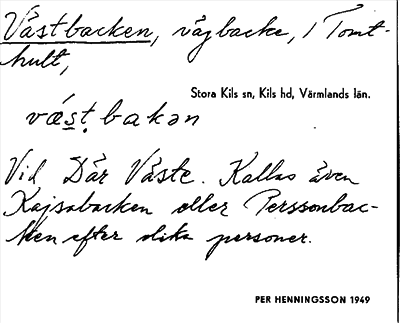 Västbacken, vägbacke, i Tomt-
hult,
Stora Kils sn, Kils hd, Värmlands län.
væ̀st̩bakən
Vid Där Väste. Kallas även
Kajsabacken eller Perssonbac-
ken efter olika personer.
PER HENNINGSSON 1949